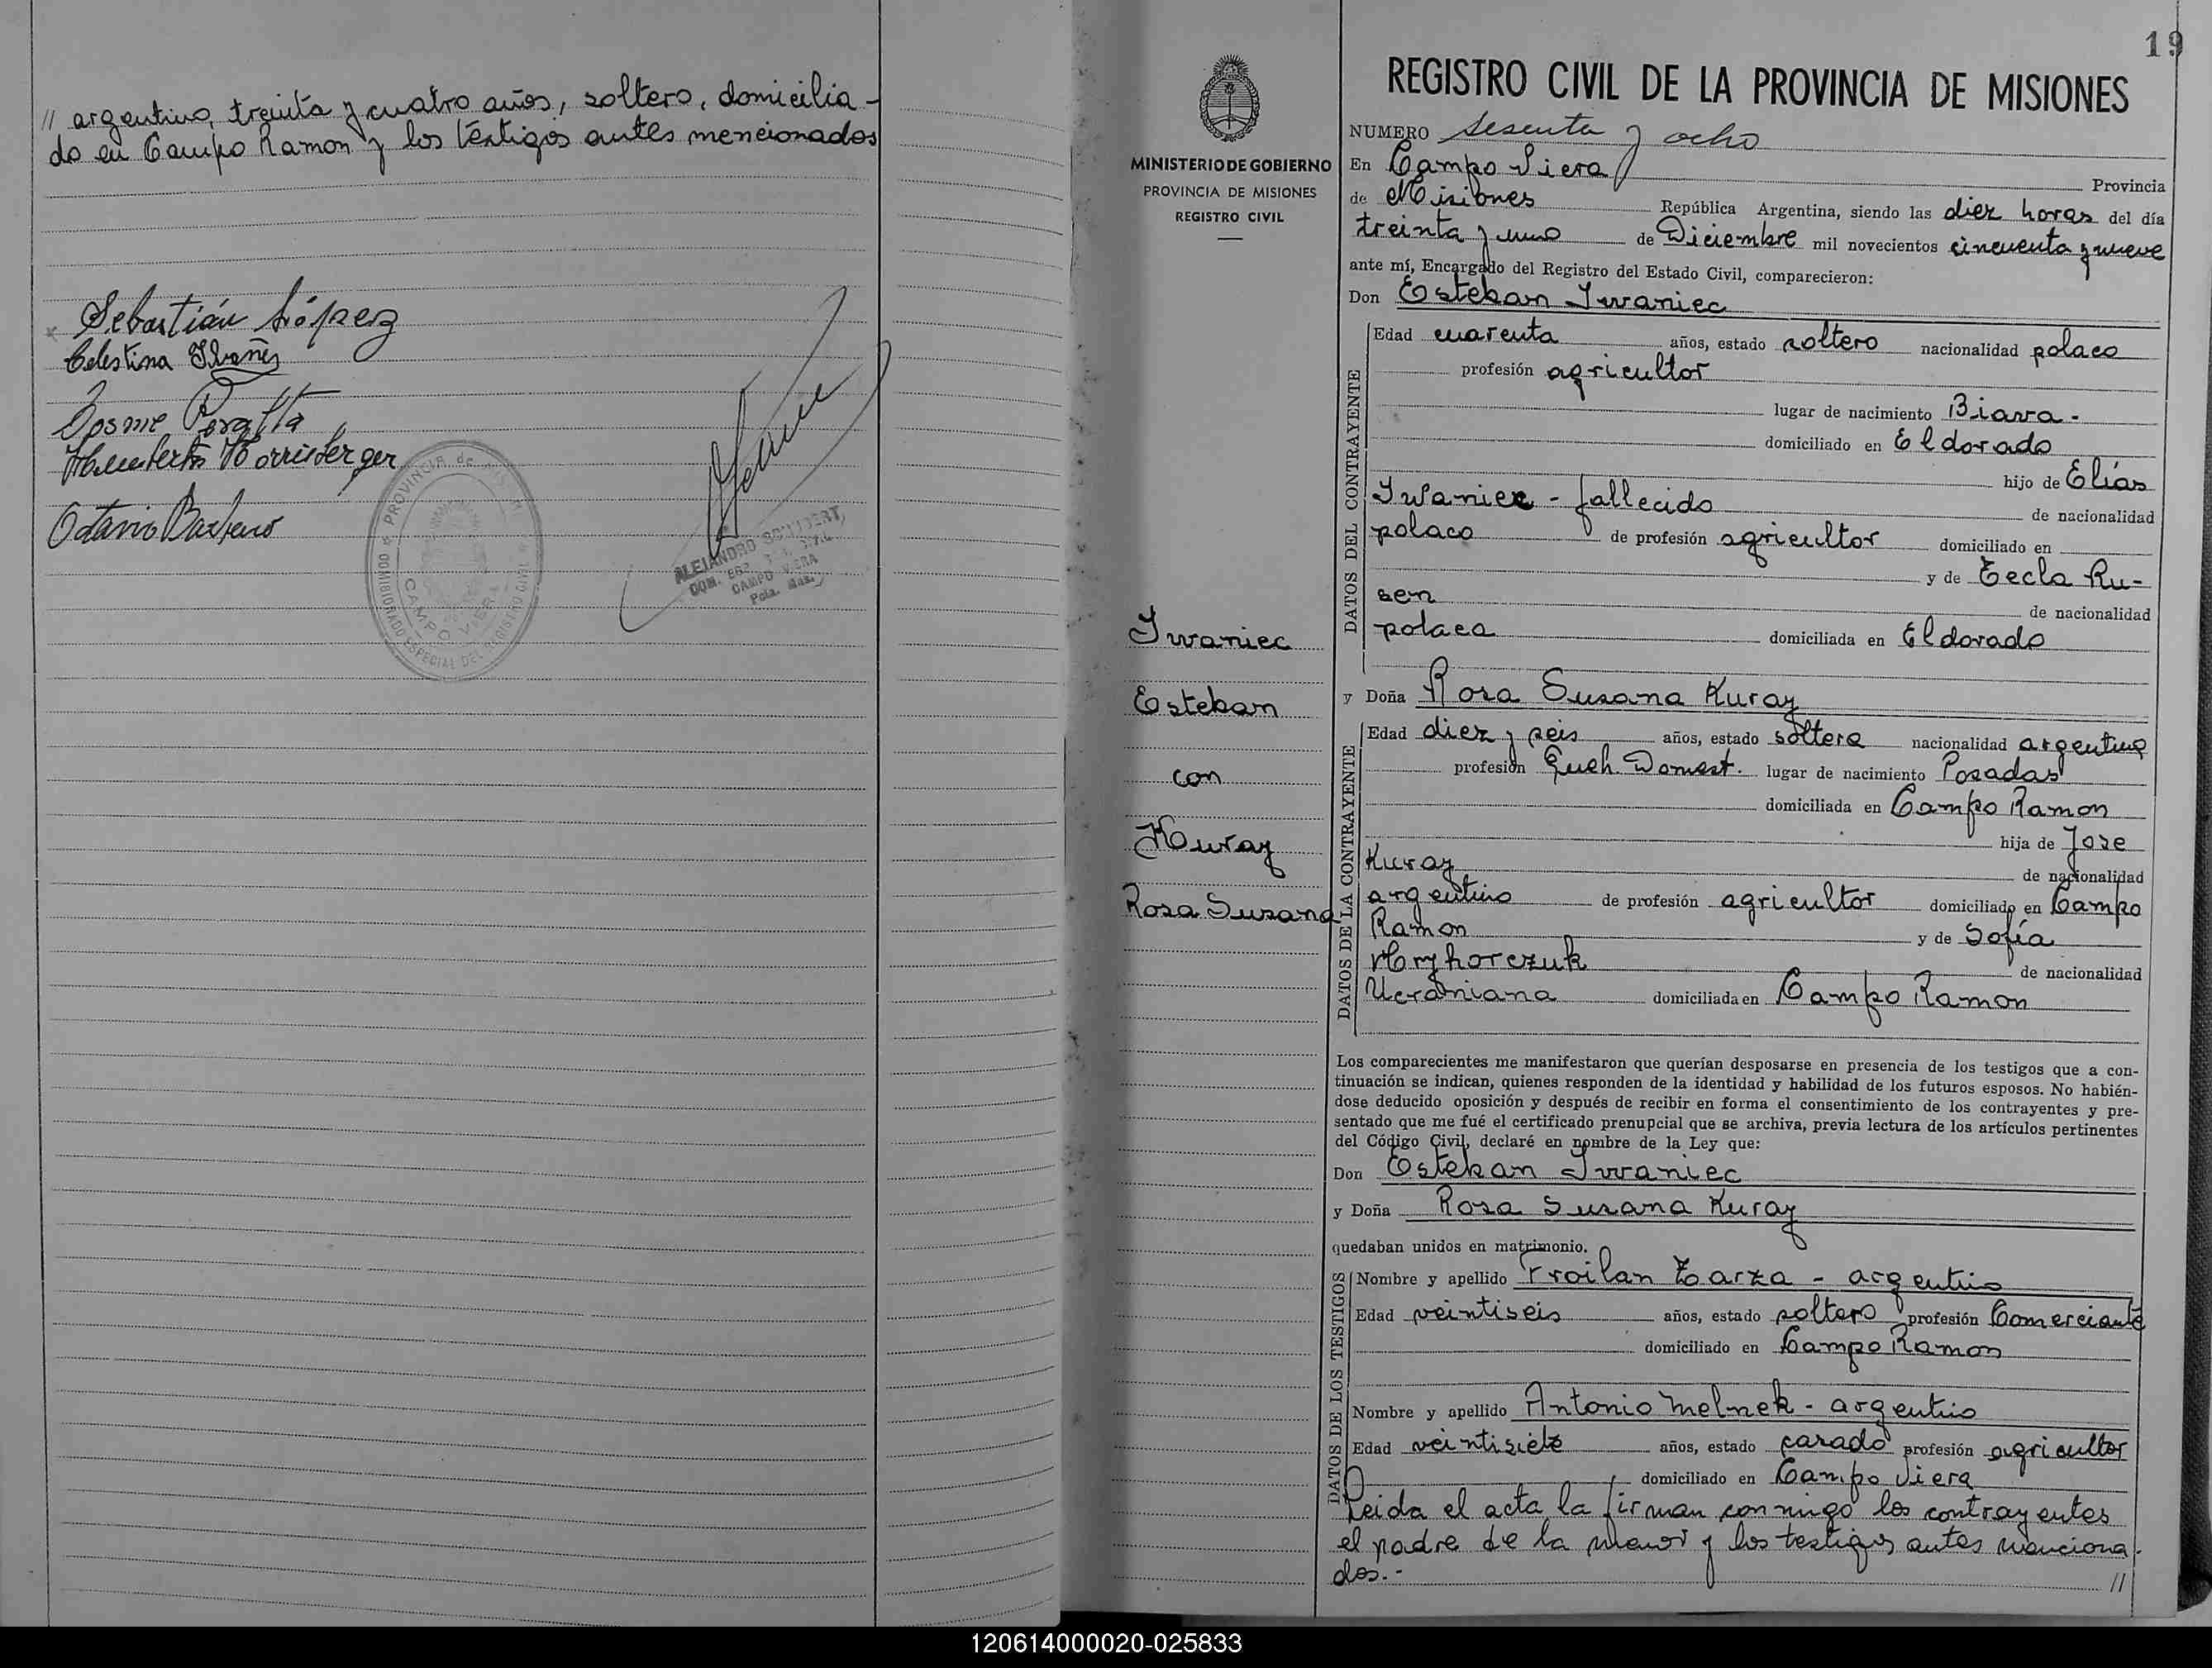 // argentino, treinta y cuatro años, soltero, domicilia-
do en Campo Ramon y los testigos antes mencionados
Sebastián López
Celestina Ibañez
Cosme Peralta
Octavio Barbero
PROVINCIA de
COMISIONADO ESPECIAL DEL REGISTRO CIVIL
CAMPO VIERA
ALEJANDRO
CAMPO VIERA
Pcia. Mnes.
19
MINISTERIO DE GOBIERNO
PROVINCIA DE MISIONES
REGISTRO CIVIL
Iwaniec
Esteban
con
Kuray
Rosa Susana
REGISTRO CIVIL DE LA PROVINCIA DE MISIONES
NUMERO Sesenta y ocho
En Campo Viera Provincia
de Misiones República Argentina, siendo las diez horas del día
treinta y uno de Diciembre mil novecientos cincuenta y nueve
ante mí, Encargado del Registro del Estado Civil, comparecieron:
Don Esteban Iwaniec
DATOS DEL CONTRAYENTE
Edad cuarenta años, estado soltero nacionalidad polaco
profesión agricultor
lugar de nacimiento Biava.-
domiciliado en Eldorado
hijo de Elías
Iwaniec - fallecido de nacionalidad
polaco de profesión agricultor domiciliado en
y de Tecla Ru-
sen de nacionalidad
polaca domiciliada en Eldorado
y Doña Rosa Susana Kuray
DATOS DE LA CONTRAYENTE
Edad diez y seis años, estado soltera nacionalidad argentina
profesión Queh. Domest. lugar de nacimiento Posadas
domiciliada en Campo Ramon
hija de Jose
Kuray de nacionalidad
argentino de profesión agricultor domiciliado en Campo
Ramon y de Sofía
Hryhorczuk de nacionalidad
Ucraniana domiciliada en Campo Ramon
Los comparecientes me manifestaron que querían desposarse en presencia de los testigos que a con-
tinuación se indican, quienes responden de la identidad y habilidad de los futuros esposos. No habién-
dose deducido oposición y después de recibir en forma el consentimiento de los contrayentes y pre-
sentado que me fué el certificado prenupcial que se archiva, previa lectura de los artículos pertinentes
del Código Civil, declaré en nombre de la Ley que:
Don Esteban Iwaniec
y Doña Rosa Susana Kuray
quedaban unidos en matrimonio.
DATOS DE LOS TESTIGOS
Nombre y apellido Froilan Zarza - argentino
Edad veintiseis años, estado soltero profesión Comerciante
domiciliado en Campo Ramon
Nombre y apellido Antonio Melnek - argentino
Edad veintisiete años, estado casado profesión agricultor
domiciliado en Campo Viera
Leida el acta la firman conmigo los contrayentes
el padre de la menor y los testigos antes menciona-
dos.- //
120614000020-025833